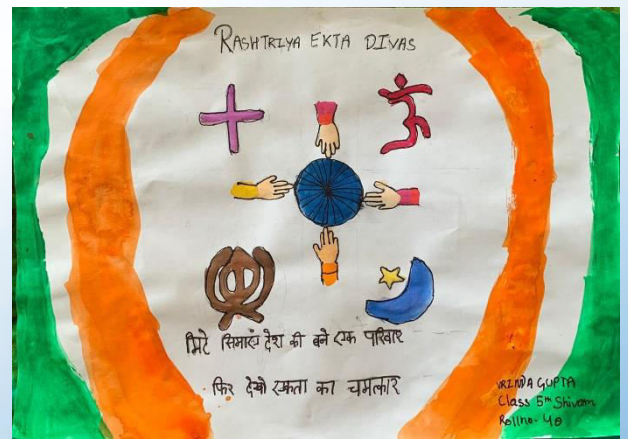 RASHTRIYA EKTA DIVAS
मिटे सिमाएं देश की बने एक परिवार
फिर देखो एकता का चमत्कार
VRINDA GUPTA
Class 5th Shivam
Rollno- 40